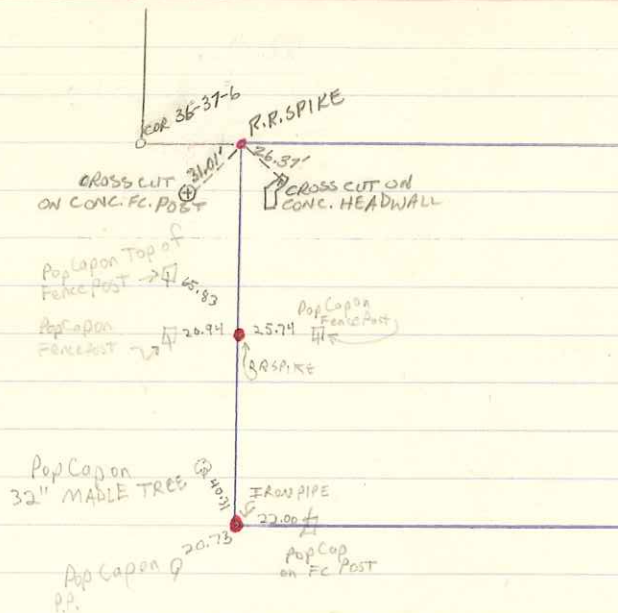 COR 36-37-6
R.R. SPIKE
31.01'
26.37'
CROSS CUT
ON CONC. FC. POST
CROSS CUT ON
CONC. HEADWALL
Pop Cap on Top of
Fence Post
65.83
Pop Cap on
Fence Post
Pop Cap on
Fence Post
20.94
25.74
RR SPIKE
Pop Cap on
32" MAPLE TREE
40.31
IRON PIPE
22.00
20.73
Pop Cap
on FC POST
Pop Cap on
P.P.